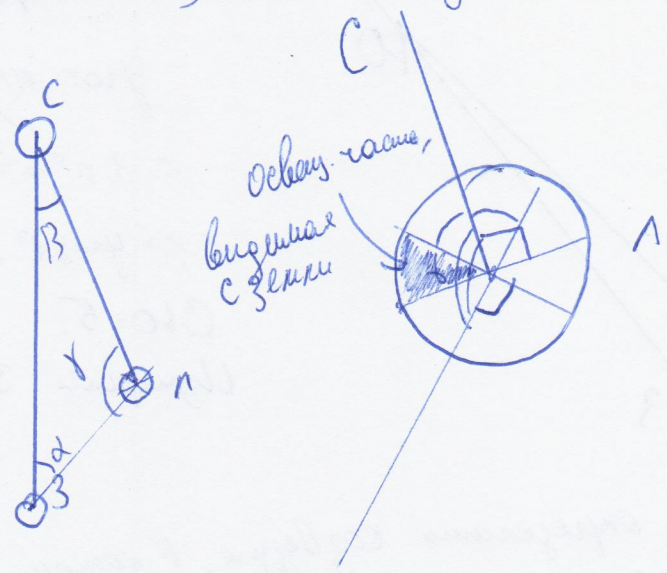 С
β
γ
Л
α
З
С
освещ. часть,
видимая
с Земли
Л